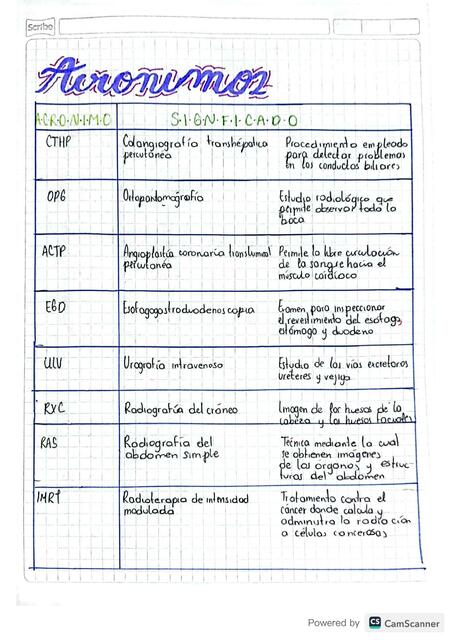 Scribe
Acronimos
A·C·R·O·N·I·M·O S·I·G·N·F·I·C·A·D·O
CTHP Colangiografía transhépatica Procedimiento empleado
percutánea para detectar problemas
en los conductos biliares
OPG Ortopantomografía Estudio radiológico que
permite observar toda la
boca
ACTP Angioplastia coronaria translumal Permite la libre circulación
percutánea de la sangre hacia el
músculo cardíoco
EGD Esofagogastroduodenoscopia Examen para inspeccionar
el revestimiento del esofago,
estómago y duodeno
UIV Urografía intravenosa Estudio de las vías excretoras
ureteres y vejiga
RXC Radiografía del cráneo Imagen de los huesos de la
cabeza y los huesos faciales
RAS Radiografía del Técnica mediante la cual
abdomen simple se obtienen imágenes
de los organos y estruc-
turas del abdomen
IMRT Radioterapia de intensidad Tratamiento contra el
modulada cáncer donde calcula y
administra la radiación
a células cancerosas
Powered by CS CamScanner